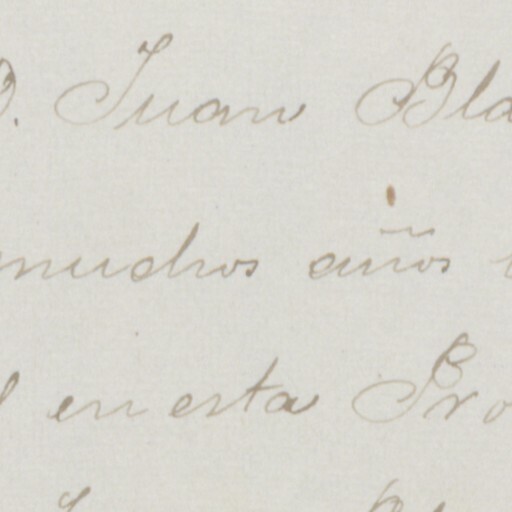 D. Juan Bla
muchos años
en esta Pro